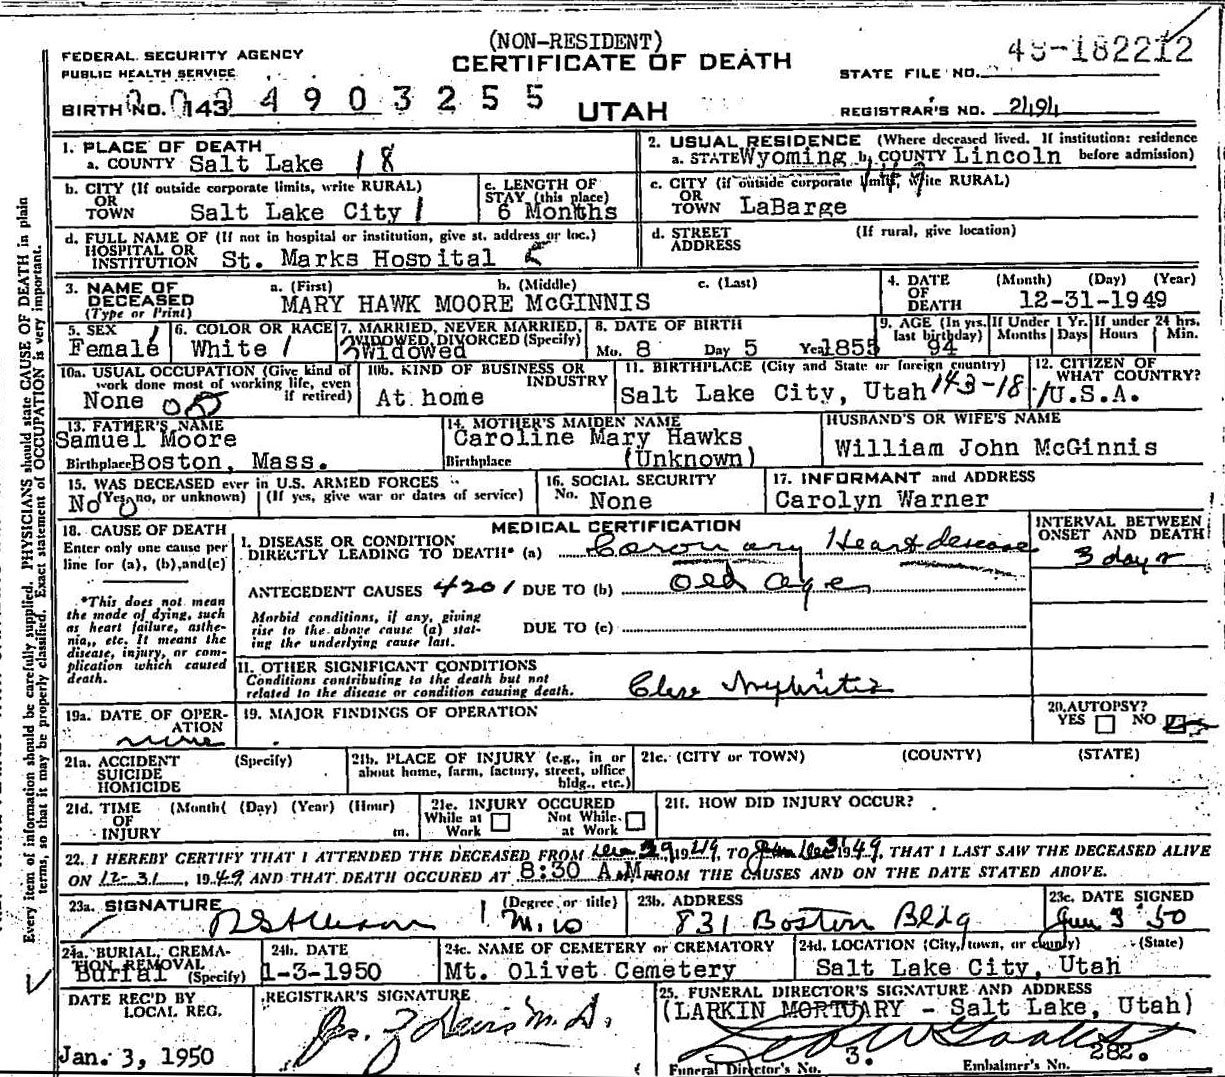 (NON-RESIDENT)
FEDERAL SECURITY AGENCY
PUBLIC HEALTH SERVICE
CERTIFICATE OF DEATH
STATE FILE NO. 49-182212
BIRTH NO. 143 4903255
UTAH
REGISTRAR'S NO. 2494
Every item of information should be carefully supplied. PHYSICIANS should state CAUSE OF DEATH in plain
terms, so that it may be properly classified. Exact statement of OCCUPATION is very important.
1. PLACE OF DEATH
a. COUNTY Salt Lake 18
2. USUAL RESIDENCE (Where deceased lived. If institution: residence
a. STATE Wyoming b. COUNTY Lincoln before admission)
b. CITY (If outside corporate limits, write RURAL)
OR
TOWN Salt Lake City 1
c. LENGTH OF
STAY (this place)
6 Months
c. CITY (if outside corporate limits, write RURAL)
OR
TOWN LaBarge
d. FULL NAME OF (If not in hospital or institution, give st. address or loc.)
HOSPITAL OR
INSTITUTION St. Marks Hospital 5
d. STREET
ADDRESS
(If rural, give location)
3. NAME OF
DECEASED
(Type or Print)
a. (First) b. (Middle) c. (Last)
MARY HAWK MOORE McGINNIS
4. DATE
OF
DEATH
(Month) (Day) (Year)
12-31-1949
5. SEX
Female 1
6. COLOR OR RACE
White 1
7. MARRIED, NEVER MARRIED,
WIDOWED, DIVORCED (Specify)
Widowed
8. DATE OF BIRTH
Mo. 8 Day 5 Year 1855
9. AGE (In yrs.
last birthday)
94
If Under 1 Yr.
Months Days
If under 24 hrs.
Hours Min.
10a. USUAL OCCUPATION (Give kind of
work done most of working life, even
if retired)
None
10b. KIND OF BUSINESS OR
INDUSTRY
At home
11. BIRTHPLACE (City and State or foreign country)
Salt Lake City, Utah 143-18
12. CITIZEN OF
WHAT COUNTRY?
U.S.A.
13. FATHER'S NAME
Samuel Moore
Birthplace Boston, Mass.
14. MOTHER'S MAIDEN NAME
Caroline Mary Hawks
Birthplace (Unknown)
HUSBAND'S OR WIFE'S NAME
William John McGinnis
15. WAS DECEASED ever in U.S. ARMED FORCES
(Yes, no, or unknown) (If yes, give war or dates of service)
No 0
16. SOCIAL SECURITY
No. None
17. INFORMANT and ADDRESS
Carolyn Warner
18. CAUSE OF DEATH
Enter only one cause per
line for (a), (b), and (c)
*This does not mean
the mode of dying, such
as heart failure, asthe-
nia, etc. It means the
disease, injury, or com-
plication which caused
death.
MEDICAL CERTIFICATION
I. DISEASE OR CONDITION
DIRECTLY LEADING TO DEATH* (a) Coronary Heart disease
ANTECEDENT CAUSES 4201 DUE TO (b) Old Age
Morbid conditions, if any, giving
rise to the above cause (a) stat-
ing the underlying cause last.
DUE TO (c)
INTERVAL BETWEEN
ONSET AND DEATH
3 days
II. OTHER SIGNIFICANT CONDITIONS
Conditions contributing to the death but not
related to the disease or condition causing death.
19a. DATE OF OPER-
ATION
none
19. MAJOR FINDINGS OF OPERATION
20. AUTOPSY?
YES NO
21a. ACCIDENT
SUICIDE
HOMICIDE
(Specify)
21b. PLACE OF INJURY (e.g., in or
about home, farm, factory, street, office
bldg., etc.)
21c. (CITY or TOWN) (COUNTY) (STATE)
21d. TIME
OF
INJURY
(Month( (Day) (Year) (Hour)
m.
21e. INJURY OCCURED
While at
Work
Not While
at Work
21f. HOW DID INJURY OCCUR?
22. I HEREBY CERTIFY THAT I ATTENDED THE DECEASED FROM Dec 29 1949, TO Dec 31 1949, THAT I LAST SAW THE DECEASED ALIVE
ON 12-31, 1949 AND THAT DEATH OCCURED AT 8:30 A.M. FROM THE CAUSES AND ON THE DATE STATED ABOVE.
23a. SIGNATURE
(Degree or title)
M.D.
23b. ADDRESS
831 Boston Bldg
23c. DATE SIGNED
Jan 3 50
24a. BURIAL, CREMA-
TION REMOVAL
(Specify)
Burial
24b. DATE
1-3-1950
24c. NAME OF CEMETERY or CREMATORY
Mt. Olivet Cemetery
24d. LOCATION (City, town, or county) (State)
Salt Lake City, Utah
DATE REC'D BY
LOCAL REG.
Jan. 3, 1950
REGISTRAR'S SIGNATURE
25. FUNERAL DIRECTOR'S SIGNATURE AND ADDRESS
(LARKIN MORTUARY - Salt Lake, Utah)
Funeral Director's No. 3.
Embalmer's No. 282.